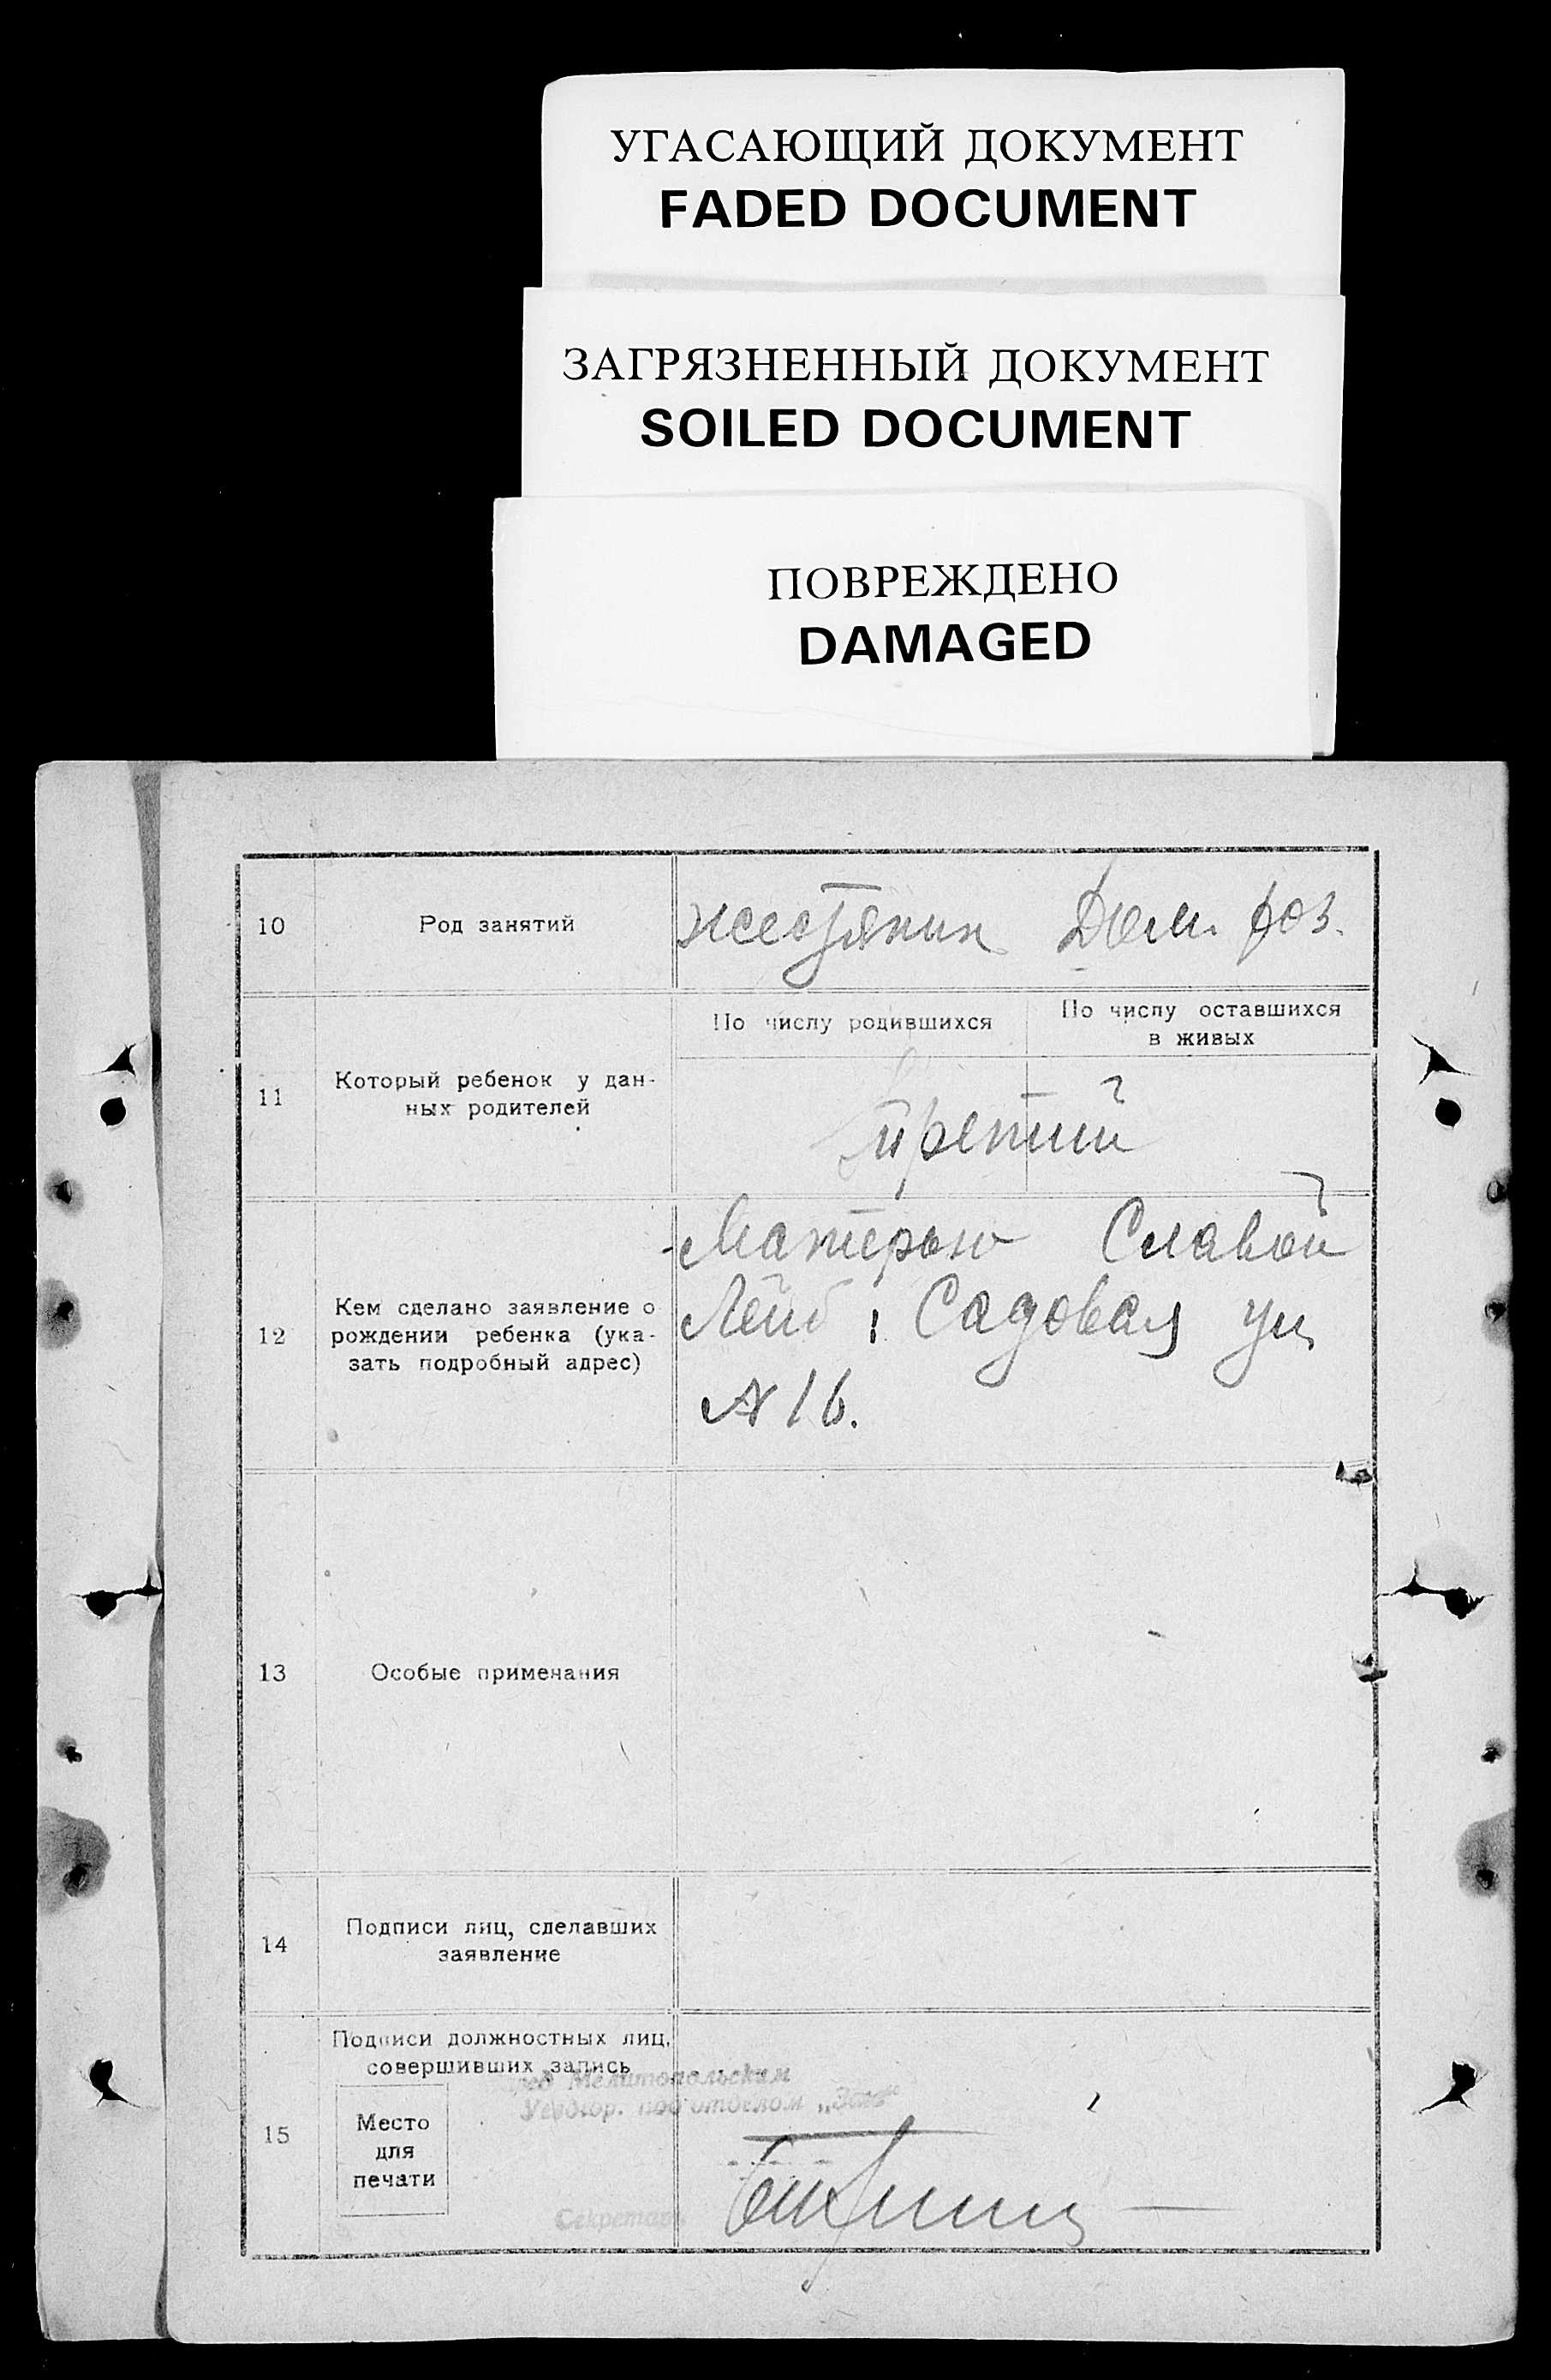 УГАСАЮЩИЙ ДОКУМЕНТ
FADED DOCUMENT
ЗАГРЯЗНЕННЫЙ ДОКУМЕНТ
SOILED DOCUMENT
ПОВРЕЖДЕНО
DAMAGED
10 Род занятий жестяник Дом. хоз.
11 Который ребенок у дан-
ных родителей
По числу родившихся
По числу оставшихся
в живых
третий
12 Кем сделано заявление о
рождении ребенка (ука-
зать подробный адрес)
Матерью Славой
Лейб; Садовая ул
№ 16.
13 Особые примечания
14 Подписи лиц, сделавших
заявление
15 Подписи должностных лиц,
совершивших запись
Мелитопольским
подотделом „Загс“
Место
для
печати
Секретарь